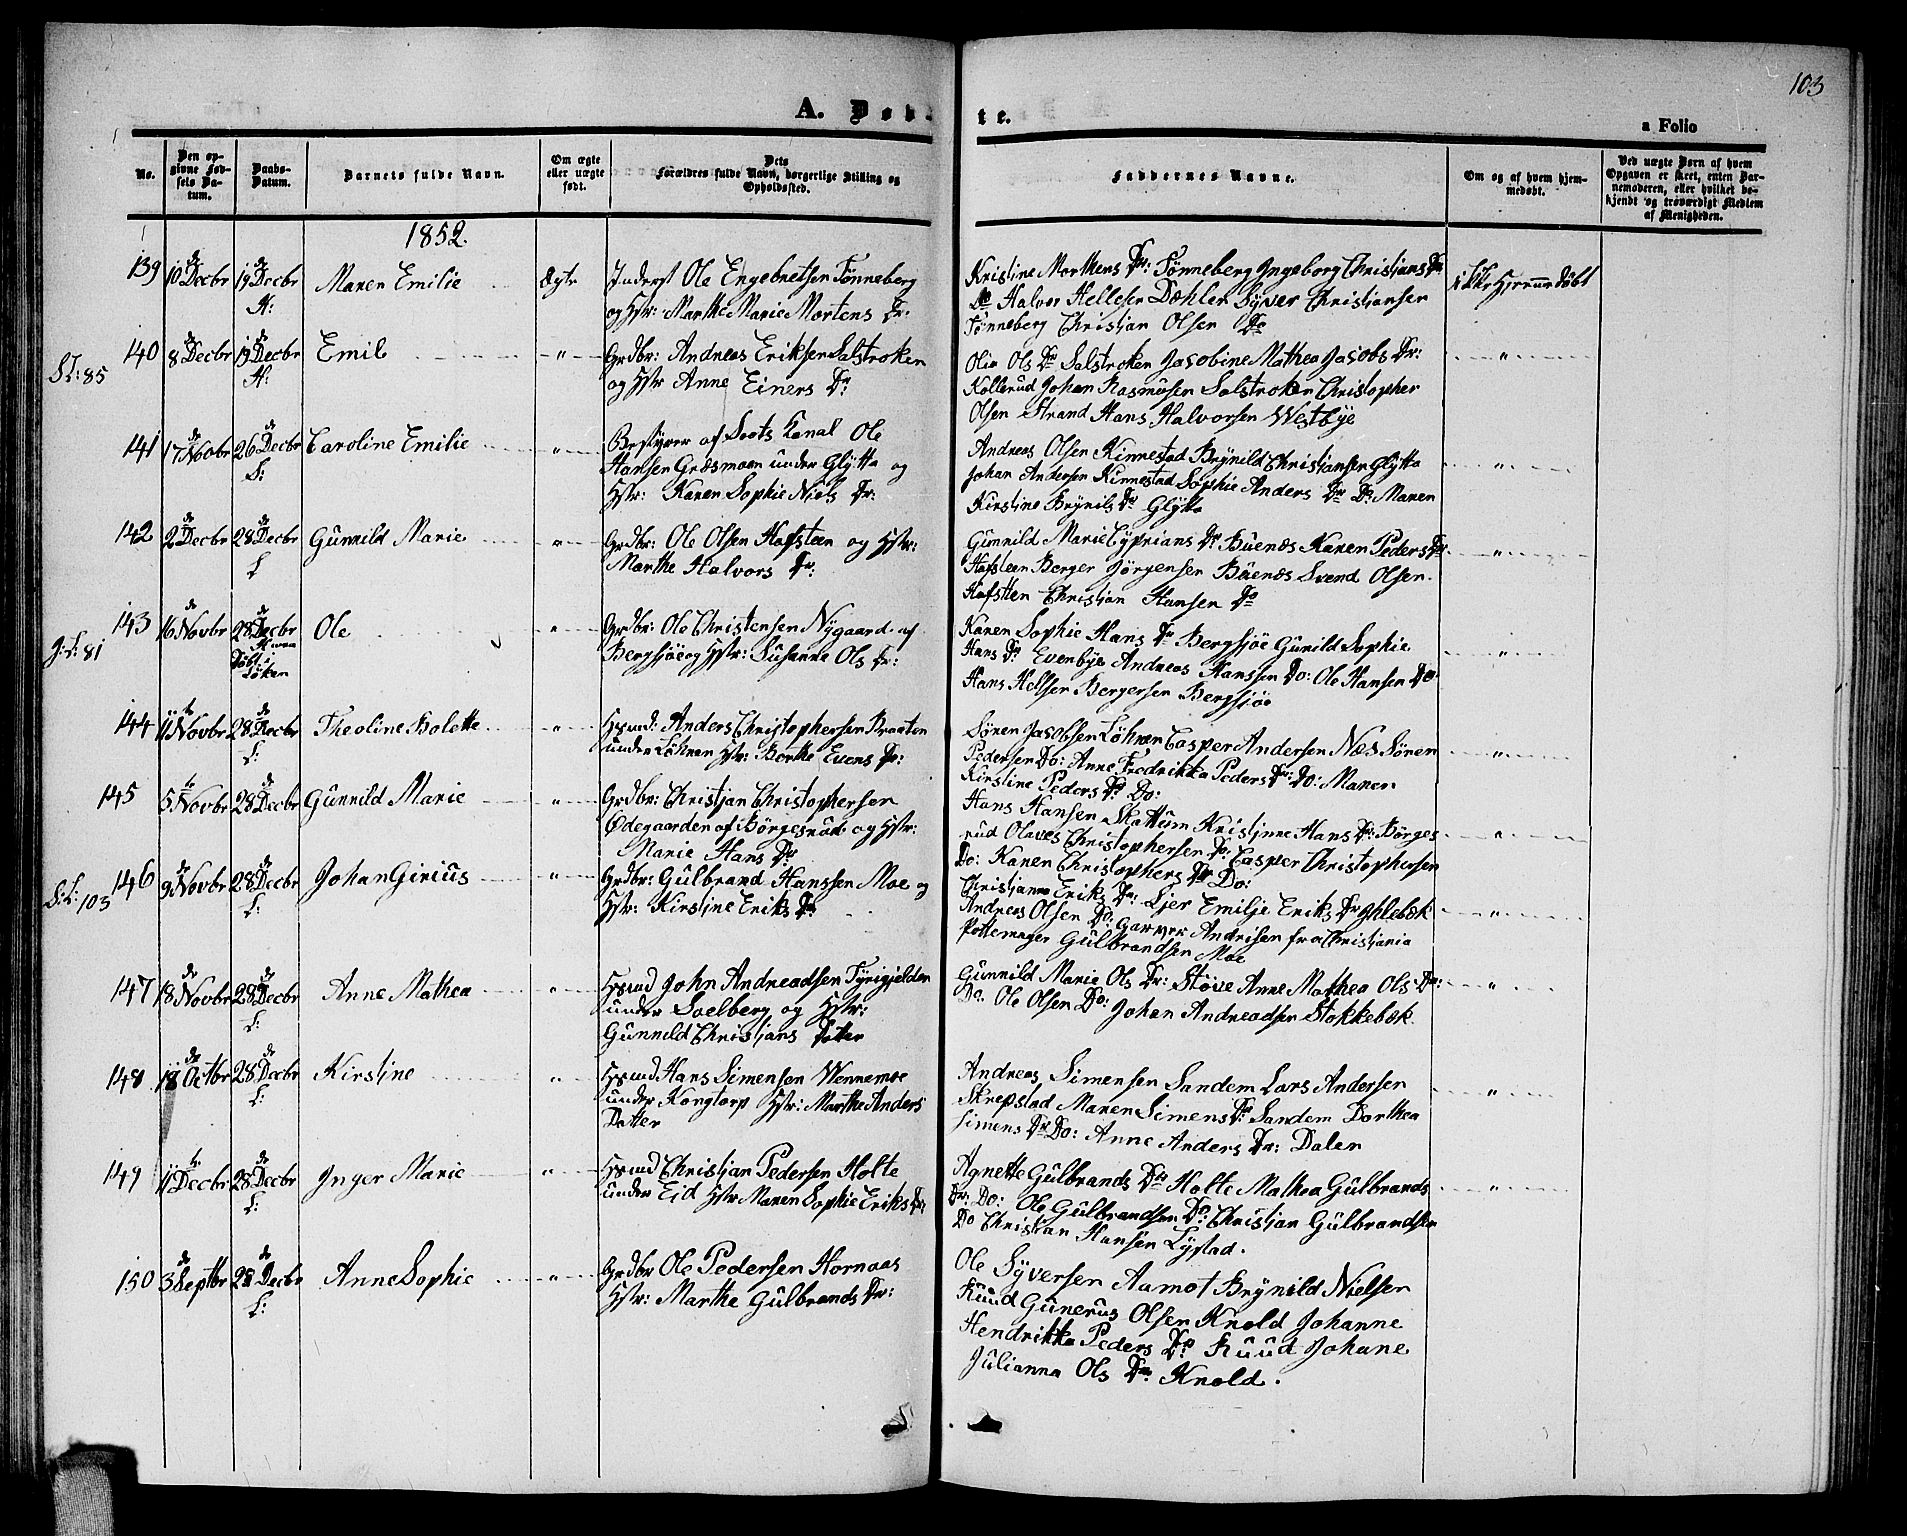 103
A. Døb-
te.
a Folio
No.
Den op-
givne Fød-
sels Da-
tum.
Daabs-
Datum.
Barnets fulde Navn.
Om ægte
eller uægte
født.
Dets
Forældres fulde Navn, borgerlige Stilling og
Opholdssted.
Faddernes Navne.
Om og af hvem hjem-
medøbt.
Ved uægte Børn af hvem
Opgaven er skeet, enten Bar-
nemoderen, eller hvilket be-
kjendt og troværdigt Medlem
af Menigheden.
1852.
139 10 de Decbr 19 de Decbr Maren Emilie Ægte Inderst Ole Engebretsen Tønneberg
H: og Hstr: Marthe Marie Mortens Dr:
Kristine Morthens Dr: Tønneberg Ingeborg Christjans Dr
Do Halvor Hellesen Dæhlen Syver Christjansen
Tønneberg Christjan Olsen Do
ikke Hjemmedøbt
140 8 de Decbr 19 de Decbr Emil " Grdbr: Andreas Eriksen Salstroken
H: og Hstr Anne Einers Dr:
Sl: 85
Olia Ols Dr Salstroken Jacobine Mathea Jacobs Dr:
Kollerud Johan Rasmusen Salstroken Christopher
Olsen Strand Hans Halvorsen Westbye
"
141 17 de Novbr 26 de Decbr Caroline Emilie " Bestyrer af Soots Kanal Ole
S: Hansen Græsmoen under Glytta og
Hstr: Karen Sophie Niels Dr:
Andreas Olsen Kinnestad Brynild Christjansen Glytta
Johan Andersen Kinnestad Sophie Anders Dr Do: Maren
Kirstine Brynils Dr Glytta
"
142 2 de Decbr 28 de Decbr Gunnild Marie " Grdbr: Ole Olsen Hafsteen og Hstr:
L Marthe Halvors Dr:
Gunnild Marie Cyprians Dr Buenæs Karen Peders Dr
Hafsteen Berger Jörgensen Buenæs Svend Olsen
Hafsten Christjan Hansen Do
"
143 16 de Novbr 28 de Decbr Ole " Grdbr: Ole Christensen Nygaard af
Bergsjöe og Hstr: Susanne Ols Dr:
J:L: 81
Karen Sophie Hans Dr Bergsjöe Gunild Sophie
Hans Dr Evenbye Andreas Hanssen Do: Ole Hansen Do:
Hans Helsen Bergersen Bergsjöe
"
144 11 te Novbr 28 de Decbr Theoline Bolette " Hsmd: Anders Christophersen Braaten
L: under Löhren Hstr: Berthe Evens Dr:
Sören Jacobsen Löhren Casper Andersen Næs Sören
Pedersen Do: Anne Fredrikka Peders Dr: Do: Maren
Kirstine Peders Dr Do:
"
145 5 te Novbr 28 de Decbr Gunnild Marie " Grdbr: Christjan Christophersen
Ødegaarden af Börgesrud og Hstr:
Marie Hans Dr
Hans Hansen Skattum Kristjnne Hans Dr: Börges
rud Olaves Christophersen Do: Casper Christophersen
Do: Karen Christophers Dr Do:
"
146 9 de Novbr 28 de Decbr Johan Girius " Grdbr: Gulbrand Hanssen Moe og
L: Hstr: Kirstine Eriks Dr
S:L: 103
Christjanna Eriks Dr: Ljer Emilje Eriks Dr Ihlebæk
Andreas Olsen Do: Garver Andrisen fra Christjania
Pottemager Gulbrandsen Moe
"
147 18 de Novbr 28 de Decbr Anne Mathea " Hsmd John Andreadsen Tyrigjelden
L: under Soelberg og Hstr:
Gunnild Christjans Dotter
Gunnild Marie Ols Dr: Støve Anne Mathea Ols Dr:
Do. Ole Olsen Do: Johan Andreadsen Stokkebæk.
"
148 18 de Octbr 28 de Decbr Kirstine " Hsmd Hans Simensen Wennemoe
L: under Kongtorp Hstr: Marthe Anders
Datter
Andreas Simensen Sandem Lars Andersen
Skrepstad Maren Simens Dr Sandem Dorthea
Simens Dr Do: Anne Anders Dr: Dalen
"
149 11 te Decbr 28 de Decbr Inger Marie " Hsmd Christjan Pedersen Holte
L: under Eid Hstr Maren Sophie Eriks Dr
Agnette Gulbrands Dr Holte Mathea Gulbrands
Dr: Do: Ole Gulbrandsen Do: Christjan Gulbrandsen
Do Christjan Hansen Lystad.
"
150 3 de Septbr 28 de Decbr Anne Sophie " Grdbr Ole Pedersen Hornaas
L: Hstr: Marthe Gulbrands Dr:
Ole Syversen Aamot Brynild Nielsen
Ruud Gunerus Olsen Knold Johanne
Hendrikka Peders Dr Ruud Johane
Julianna Ols Dr Knold.